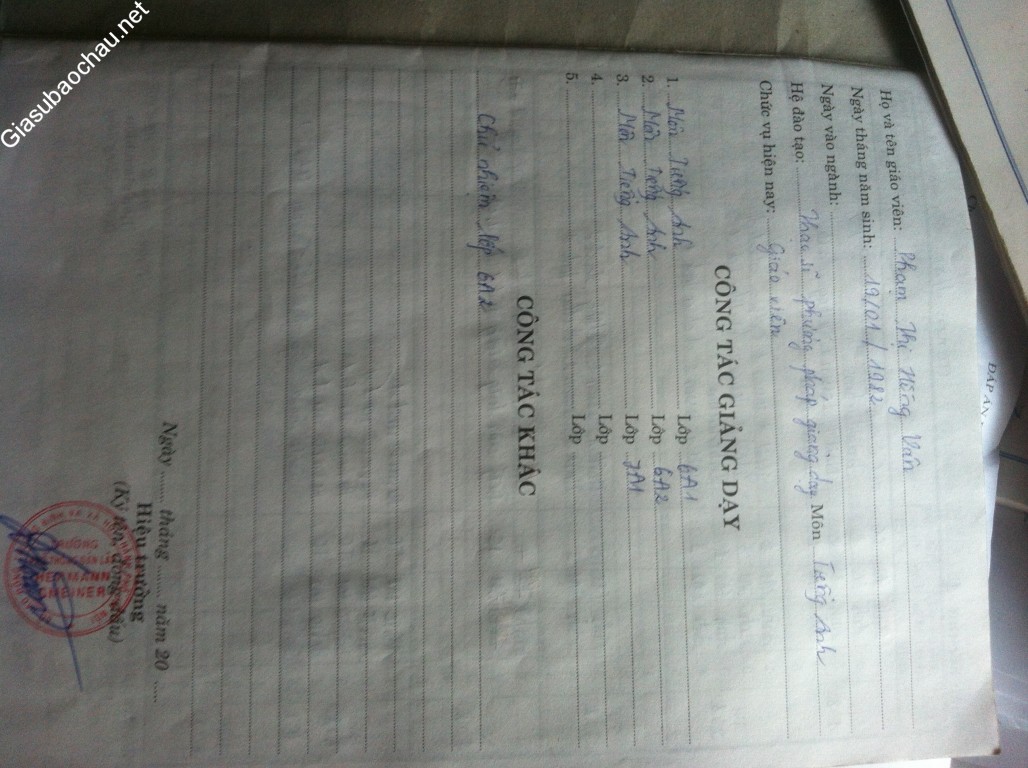 Giasubaochau.net
ĐÁP ÁN
Họ và tên giáo viên: Phạm Thị Hồng Vân
Ngày tháng năm sinh: 19/01/1982
Ngày vào ngành:
Hệ đào tạo: Thạc sĩ phương pháp giảng dạy Môn Tiếng Anh
Chức vụ hiện nay: Giáo viên
CÔNG TÁC GIẢNG DẠY
1. Môn Tiếng Anh Lớp 6A1
2. Môn Tiếng Anh Lớp 6A2
3. Môn Tiếng Anh Lớp 7A1
4. Lớp
5. Lớp
CÔNG TÁC KHÁC
Chủ nhiệm lớp 6A2
Ngày ...... tháng ...... năm 20 ....
Hiệu trưởng
(Ký tên, đóng dấu)
TRƯỜNG
HERMANN
GMEINER